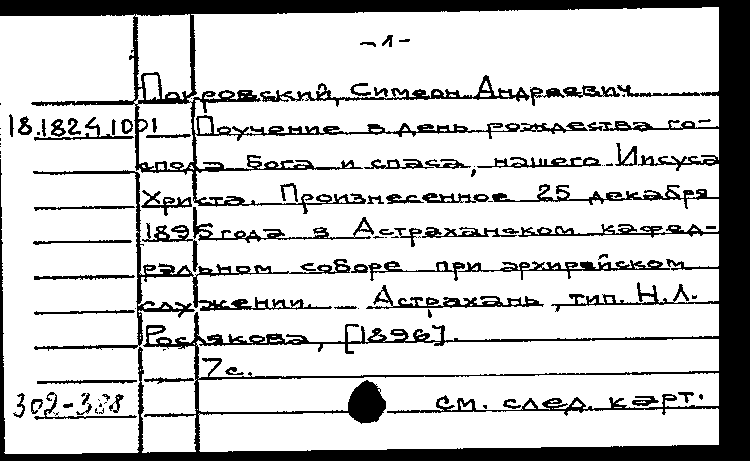 -1-
Покровский, Симеон Андреевич
18.182.4.1001 Поучение в день рождества го-
спода Бога и спаса, нашего Иисуса
Христа. Произнесенное 25 декабря
1895 года в Астраханском кафед-
ральном соборе при архирейском
служении. Астрахань, тип. Н.Л.
Рослякова, [1896].
7с.
302-388 см. след. карт.